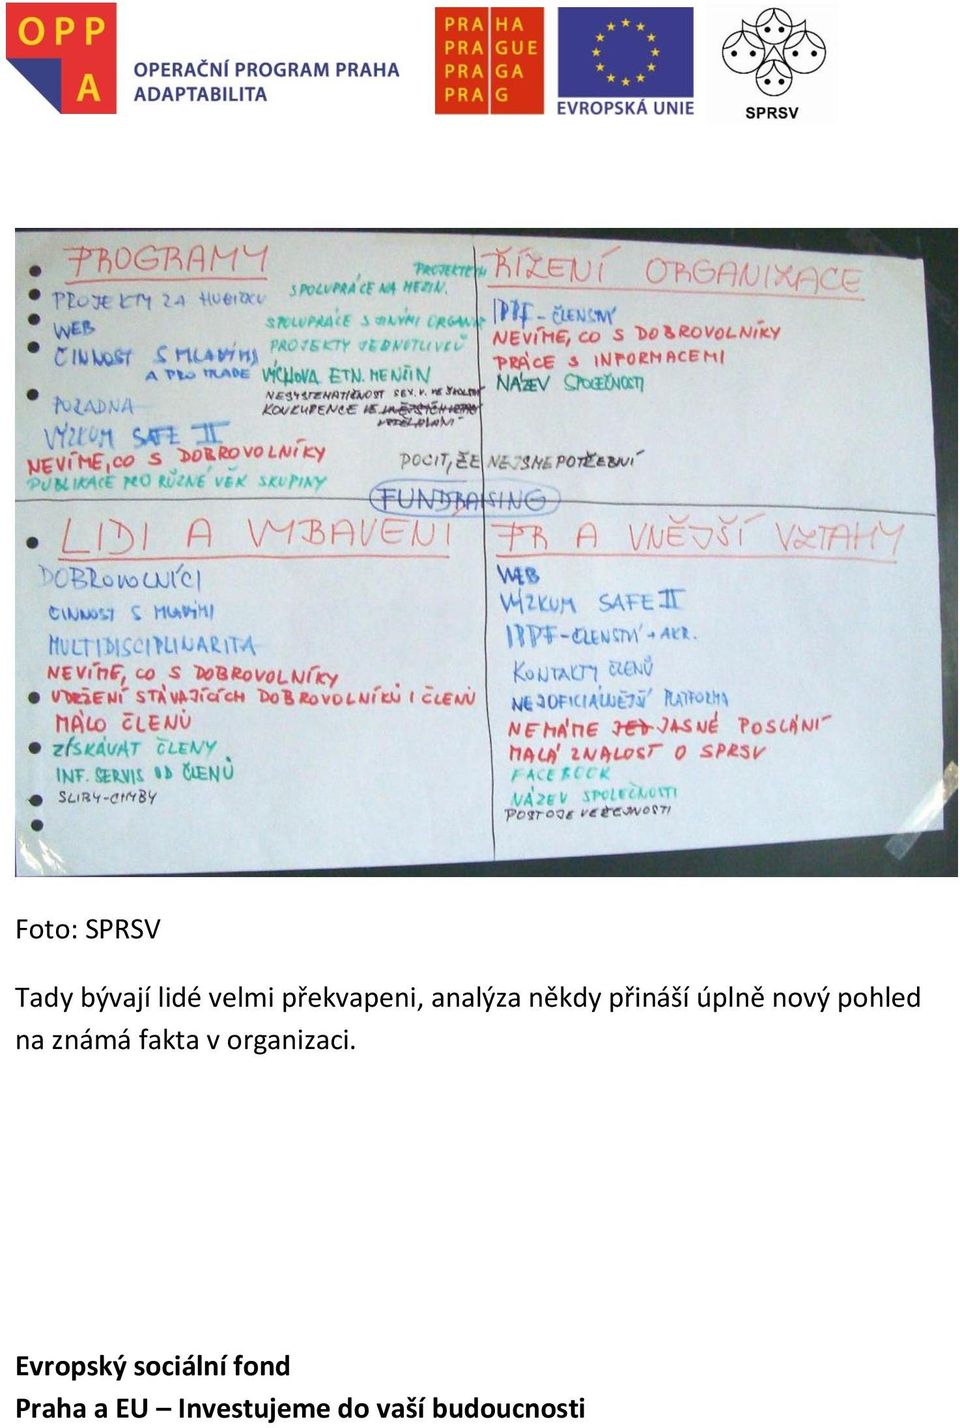 OPP
A
OPERAČNÍ PROGRAM PRAHA
ADAPTABILITA
PRAHA
PRAGUE
PRAGA
PRAG
EVROPSKÁ UNIE
SPRSV
PROGRAMY
PROJEKTY ZA HUBIČKU
WEB
ČINNOST S MLADÝMI
A PRO MLADÉ
PORADNA
VÝZKUM SAFE II
NEVÍME, CO S DOBROVOLNÍKY
PUBLIKACE PRO RŮZNÉ VĚK SKUPINY
SPOLUPRÁCE NA MEZIN.
SPOLUPRÁCE S JINÝMI ORGANI
PROJEKTY JEDNOTLIVCŮ
VÝCHOVA ETN. MENŠIN
NESYSTEMATIČNOST SEX. V. VE ŠKOLÁCH
KONKURENCE VE
VZDĚLÁVÁNÍ
POCIT, ŽE NEJSME POTŘEBNÍ
FUNDRAISING
ŘÍZENÍ ORGANIZACE
IPPF - ČLENSTVÍ
NEVÍME, CO S DOBROVOLNÍKY
PRÁCE S INFORMACEMI
NÁZEV SPOLEČNOSTI
LIDI A VYBAVENÍ
DOBROVOLNÍCI
ČINNOST S MLADÝMI
MULTIDISCIPLINARITA
NEVÍME, CO S DOBROVOLNÍKY
UDRŽENÍ STÁVAJÍCÍCH DOBROVOLNÍKŮ I ČLENŮ
MÁLO ČLENŮ
ZÍSKÁVAT ČLENY
INF. SERVIS OD ČLENŮ
SLIBY-CHYBY
PR A VNĚJŠÍ VZTAHY
WEB
VÝZKUM SAFE II
IPPF - ČLENSTVÍ + AKR.
KONTAKTY ČLENŮ
NEJOFICIÁLNĚJŠÍ PLATFORMA
NEMÁME JED JASNÉ POSLÁNÍ
MALÁ ZNALOST O SPRSV
FACEBOOK
NÁZEV SPOLEČNOSTI
POSTOJE VEŘEJNOSTI
Foto: SPRSV
Tady bývají lidé velmi překvapeni, analýza někdy přináší úplně nový pohled
na známá fakta v organizaci.
Evropský sociální fond
Praha a EU – Investujeme do vaší budoucnosti